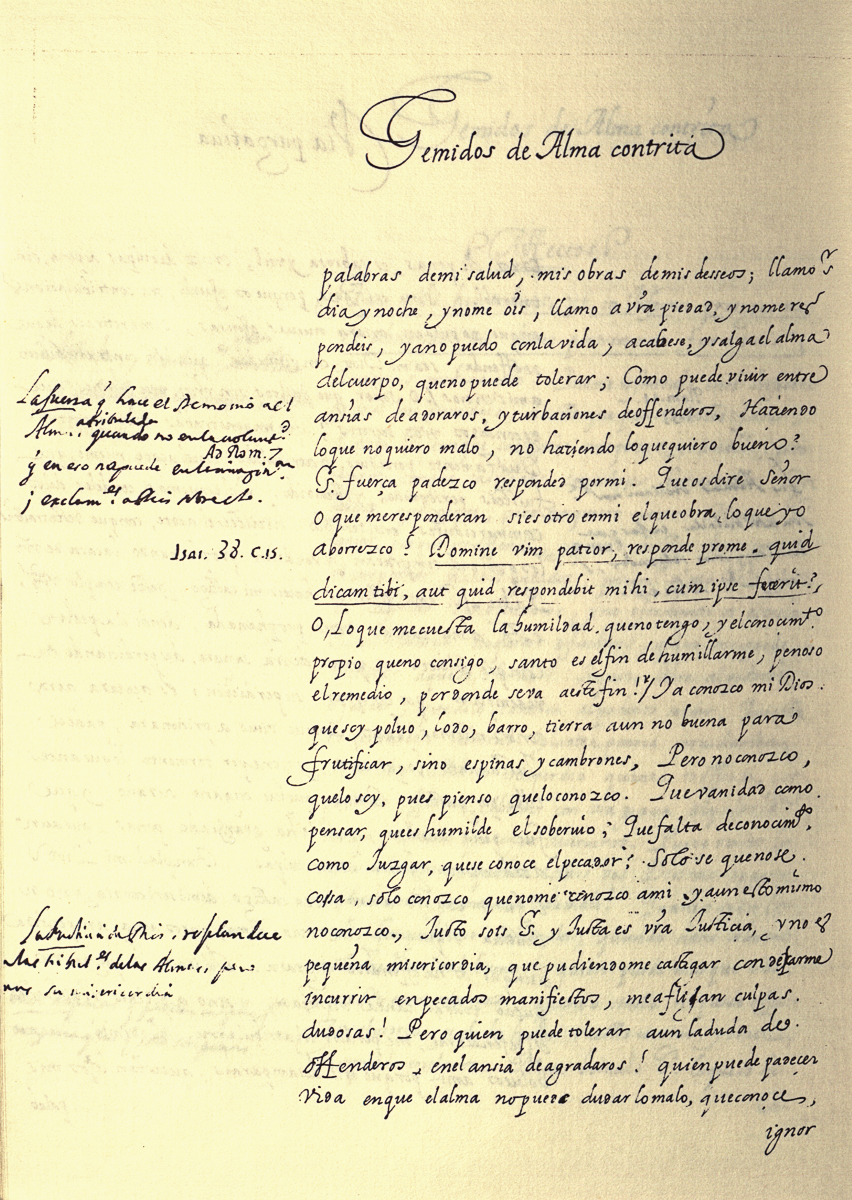 Gemidos de Alma contrita
palabras demi salud, mis obras demis desseos; llamo os
dia y noche, y nome ois, llamo a vra piedad, y nome res
pondeis, ya no puedo con la vida, acabese, y salga el alma
del cuerpo, que no puede tolerar; Como puede viuir entre
ansias de adoraros, y turbaciones de offenderos, Haziendo
lo que no quiero malo, no haziendo lo que quiero bueno?
Sr. fuerça padezco responded por mi. Que os dire Señor
o que me responderan si es otro en mi el que obra, lo que yo
aborrezco? Domine vim patior, responde pro me. quid
dicam tibi, aut quid respondebit mihi, cum ipse fecerit?,
O, Lo que me cuesta la humildad. que no tengo, y el conocimto
propio que no consigo, santo es el fin de humillarme, penoso
el remedio, por donde se va a este fin! Ya conozco mi Dios
que soy poluo, lodo, barro, tierra aun no buena para
frutificar, sino espinas, y cambrones, Pero no conozco,
que lo soy, pues pienso que lo conozco. Que vanidad como
pensar, que es humilde el soberuio; Que falta de conocimto,
como Iuzgar, que se conoce el pecador? Solo se que no se
cosa, solo conozco que no me conozco a mi y aun esto mismo
no conozco, Iusto sois Sr. y Iusta es vra Iusticia, y no es
pequeña misericordia, que pudiendome castigar con dexarme
incurrir en pecados manifiestos, me aflijan culpas
dudosas! Pero quien puede tolerar aun la duda de
offenderos, en el ansia de agradaros! quien puede padecer
vida en que el alma no puede dudar lo malo, que conoce,
ignor
La fuersa q hace el Demonio a el
Alma atribulada
quando no en la volunt.d
Ad Rom. 7
y en eso no puede en la imagin.on
Isai. 38. c. 15.
La Justicia de Dios, resplandece
delas Almas, pero
mas su misericordia